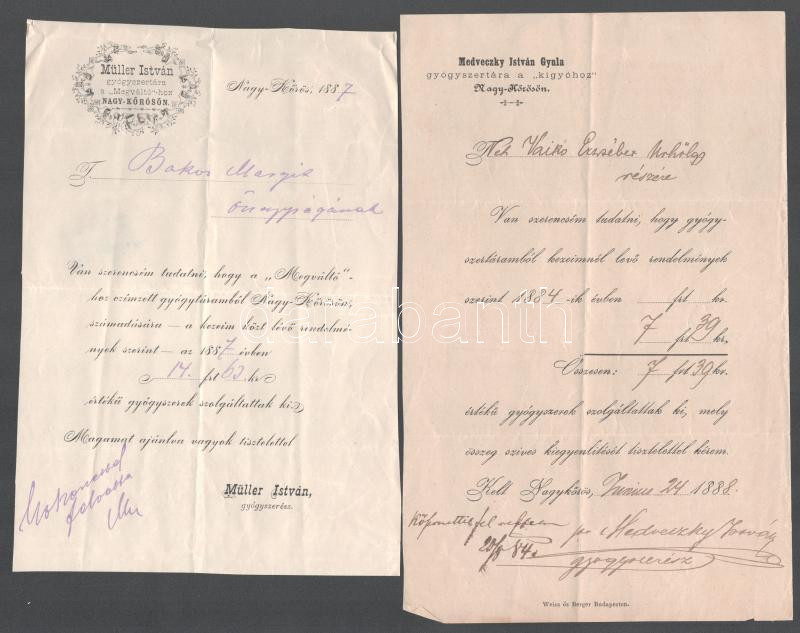 Müller István
gyógyszertára
a „Megváltó"-hoz
NAGY-KŐRÖSÖN.
Nagy-Kőrös, 1887
T. Bakos Margit
Őnagyságának
Van szerencsém tudatni, hogy a „Megváltó"-
hoz czimzett gyógytáramból Nagy-Kőrösön,
számadására — a kezeim közt lévő rendelmé-
nyek szerint — az 1887 évben
14 frt 63 kr
értékű gyógyszerek szolgáltattak ki.
Magamat ajánlva vagyok tisztelettel
Müller István,
gyógyszerész.
Medveczky István Gyula
gyógyszertára a „kigyóhoz"
Nagy-Kőrösön.
Vaikó Erzsébet
részére
Van szerencsém tudatni, hogy gyógy-
szertáramból kezeimnél levő rendelmények
szerint 1884-ik évben frt kr.
7 frt 39 kr.
Összesen: 7 frt 39 kr.
értékű gyógyszerek szolgáltattak ki, mely
összeg szives kiegyenlitését tisztelettel kérem.
Kelt Nagykőrös, Junius 24 1888.
Medveczky István
gyógyszerész
Weisz és Berger Budapesten.
darabanth